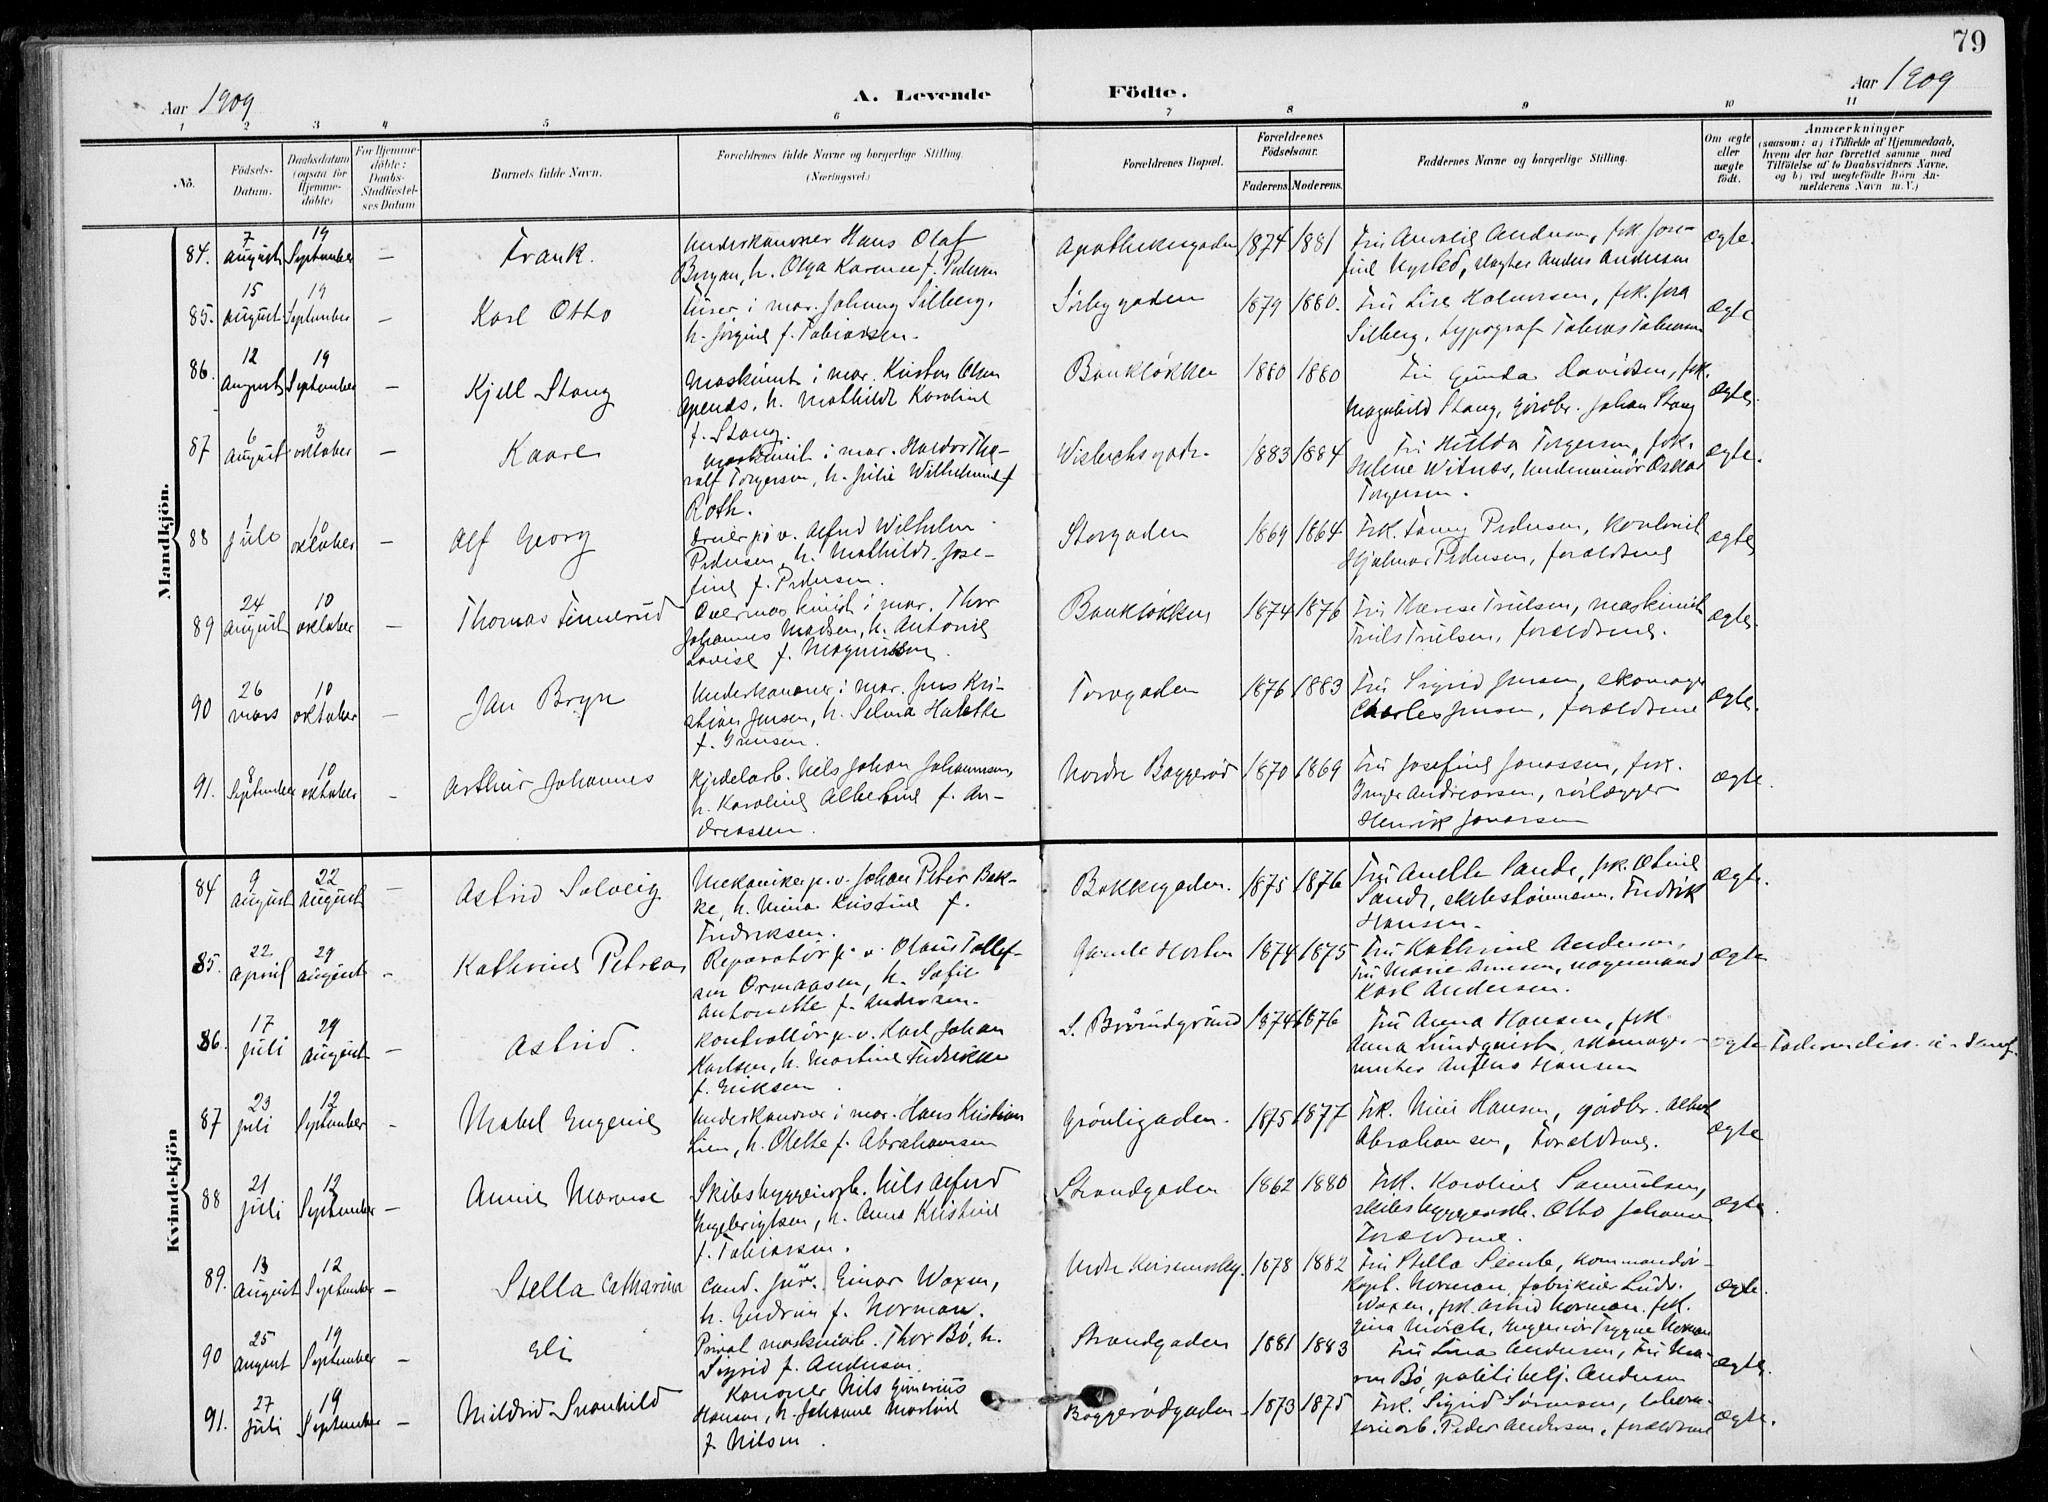 79
Aar 1909
A. Levende Födte.
Aar 1909
1 2 3 4 5 6 7 8 9 10 11
No.
Födsels-Datum.
Daabsdatum (ogsaa for Hjemme-döbte)
For Hjemme-döbte: Daabs-Stadfæstel-ses Datum
Barnets fulde Navn.
Forældrenes fulde Navne og borgerlige Stilling.
(Næringsvei.)
Forældrenes Bopæl.
Forældrenes Födselsaar.
Faderens. Moderens.
Faddernes Navne og borgerlige Stilling.
Om ægte eller uægte födt.
Anmærkninger
(saasom: a) i Tilfælde af Hjemmedaab, hvem der har forrettet samme med Tilföielse af to Daabsvidners Navne, og b) ved uægtefödte Börn An-melderens Navn m. V.)
Mandkjön.
84. 7 august 19 September – Frank. Underkanoner Hans Olaf
Bergan, h. Olga Karense f. Pedersen
Apothekergaden 1874 1881 Fru Amalie Andersen, frk. Jose-
fine Nysted, Anders Andersen ægte.
85. 15 august 19 September – Karl Otto
i mar. Johnny Silberg,
h. Jørgine f. Tobiassen.
Sørbygaden 1879 1880. Fru Lise Halvorsen, frk.
Silberg, typograf Tobias Tobiassen ægte
86. 12 August 19 September – Kjell Stang
Maskinist i mar. Kristen Olsen
h. Mathilde Karoline
f. Stang.
Bankløkken 1880 1880 Fru Gunda Davidsen, frk.
Magnhild Stang, gårdbr. Johan Stang ægte.
87 6 August 3 oktober – Kaare
Maskinist i mar. Haldor Tho-
ralf Torgersen, h. Julie Wilhelmine f.
Roth.
1883 1884 Fru Hilda Torgersen, frk.
Helene Witnes, Underminør Oskar
Torgersen. ægte.
88 1 juli 10 oktober – Alf Georg
Dreier på v. Alfred Wilhelm
Pedersen, h. Mathilde Jose-
fine f. Pedersen.
Storgaden 1869 1864 Frk. Fanny Pedersen, kontorist
Hjalmar Pedersen, forældrene ægte
89 24 august 10 oktober – Thomas Finnerud
Overmaskinist i mar. Thor
Johannes Madsen, h. Antonie
Lovise f. Magnussen.
Bankløkken 1874 1876 Fru Therese Trulsen, maskinist
Truls Trulsen, forældrene. ægte.
90 26 mars 10 oktober – Jan Bryn
Underkanoner i mar. Jens Kri-
stian Jensen, h. Selma Halette
f. Jensen.
Torvgaden 1876 1883 Fru Sigrid Jensen, skomager
Charles Jensen, forældrene ægte.
91. 8 September 10 oktober – Arthur Johannes
Kjedelarb. Nils Johan Johannesen,
h. Karoline Albertine f. An-
dreassen.
Nordre Baggerød 1870 1869 Fru Josefine Jonassen, frk.
Inger Andreassen, rørlægger
Henrik Jonassen ægte.
Kvindekjön
84 9 August 22 August – Astrid Solveig
Mekaniker p. v. Johan Peter Bak-
ke, h. Mina Kristine f.
Fredriksen.
Bakkegaden. 1875 1876 Fru Anette Sande, frk. Otine
Sande, skibstømmerm. Fredrik
Hansen. ægte.
85. 22 April 29 august – Kathrine Petrea
Reparatør p. v. Olaus Tollef-
sen Ormaasen, h. Sofie
Antonette f. Andersen.
Gamle Horten 1874 1875 Fru Kathrine Andersen,
Fru Marie Arnesen, vognmand
Karl Andersen. ægte
86. 17 juli 29 August – Astrid.
Kontrollør p. v. Karl Johan
Karlsen, h. Martine Fredrikke
f. Eriksen.
S. Brårudgrund 1874 1876 Fru Anna Hansen, frk.
Anna Lundquist, skomager-
mester Hansen ægte
87 23 juli 12 September – Mabel Eugenie
Underkanoner i mar. Hans Kristian
Lien, h. Olette f. Abrahamsen
Grønligaden. 1875 1877 Frk. Hansen, gårdbr. Albert
Abrahamsen, Forældrene. ægte
88 21 juli 12 September – Annie Marense
Skibsbyggerarb. Nils Alfred
Ingebrigtsen, h. Anna Kristine
f. Tobiassen.
Strandgaden 1862 1880 Frk. Karoline Samuelsen,
skibsbyggerarb. Otto Johansen
Forældrene. ægte.
89. 13 August 12 September – Stella Catharina
Cand. jur. Einar Waxen,
h. Gudrun f. Norman.
1878 1882 Fru Stella kommandør-
kapt. Norman, fabrikeier Ludv.
Waxen, frk. Astrid Norman. frk.
Gina Mørch, Ingeniør Trygve Norman ægte.
90 25 August 19 September – Eli
Privat maskinarb. Thor Bø, h.
Sigrid f. Andersen.
Strandgaden 1881 1883 Fru Lina Andersen, Fru Ma-
ren Bø, politibetj. Andersen ægte.
91. 27 juli 19 September – Mildrid Svanhild
Kanoner Nils Gunerius
Hansen, h. Johanne Martine
f. Nilsen.
Baggerødgaden 1873 1875 Frk. Sigrid Sørensen, labora-
toriearb. Peder Andersen, forældrene ægte.